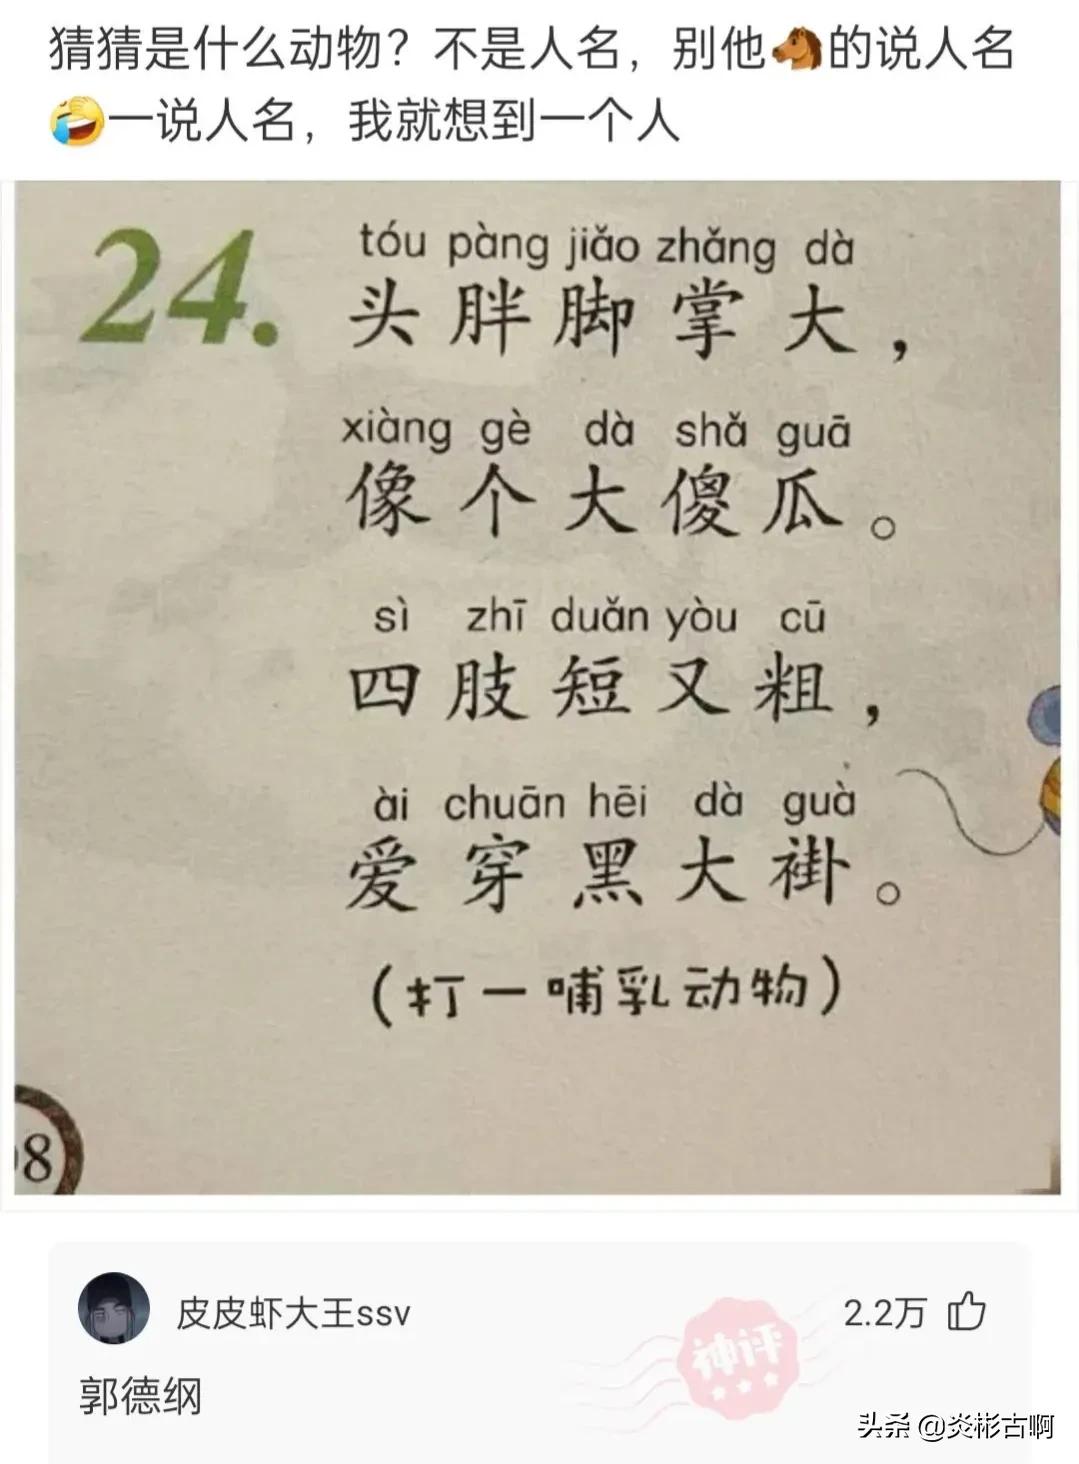 猜猜是什么动物？不是人名，别他🐴的说人名
🤣一说人名，我就想到一个人
24.
tóu pàng jiǎo zhǎng dà
头胖脚掌大，
xiàng gè dà shǎ guā
像个大傻瓜。
sì zhī duǎn yòu cū
四肢短又粗，
ài chuān hēi dà guà
爱穿黑大褂。
（打一哺乳动物）
8
皮皮虾大王ssv
2.2万
神评
郭德纲
头条 @炎彬古啊